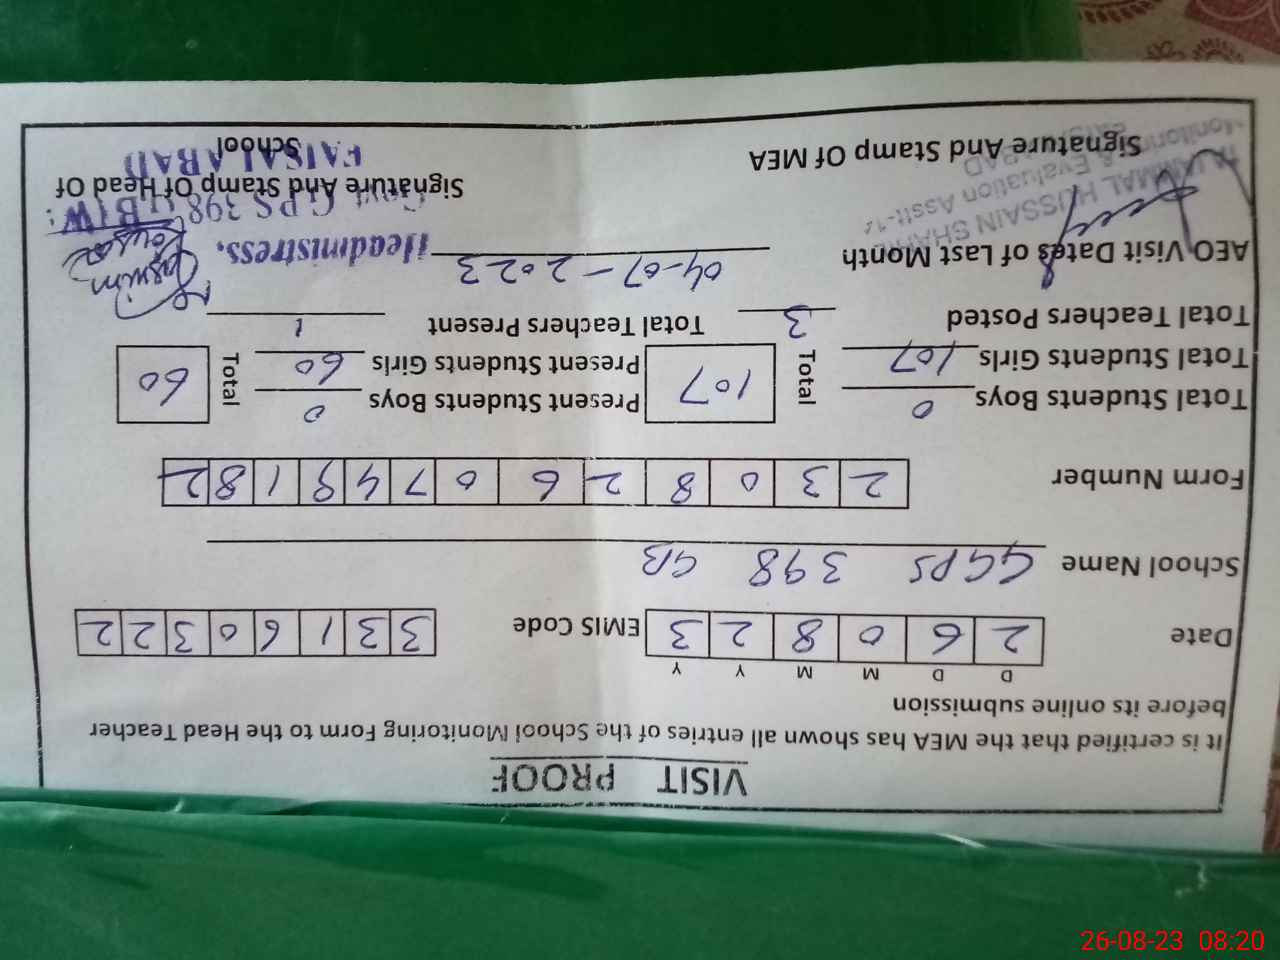 VISIT PROOF
It is certified that the MEA has shown all entries of the School Monitoring Form to the Head Teacher
before its online submission
D D M M Y Y
Date 2 6 0 8 2 3 EMIS Code 3 3 1 6 0 3 2 2
School Name GGPS 398 GB
Form Number 2 3 0 8 2 6 0 7 4 9 1 8 2
Total Students Boys 0 Total 107 Present Students Boys 0 Total 60
Total Students Girls 107 Present Students Girls 60
Total Teachers Posted 3 Total Teachers Present 1
AEO Visit Dates of Last Month 04-07-2023
Headmistress,
Govt. G.P.S 398
FAISALABAD
HUSSAIN
Monitoring & Evaluation Asstt-14
Signature And Stamp Of MEA
Signature And Stamp Of Head Of
School
26-08-23 08:20